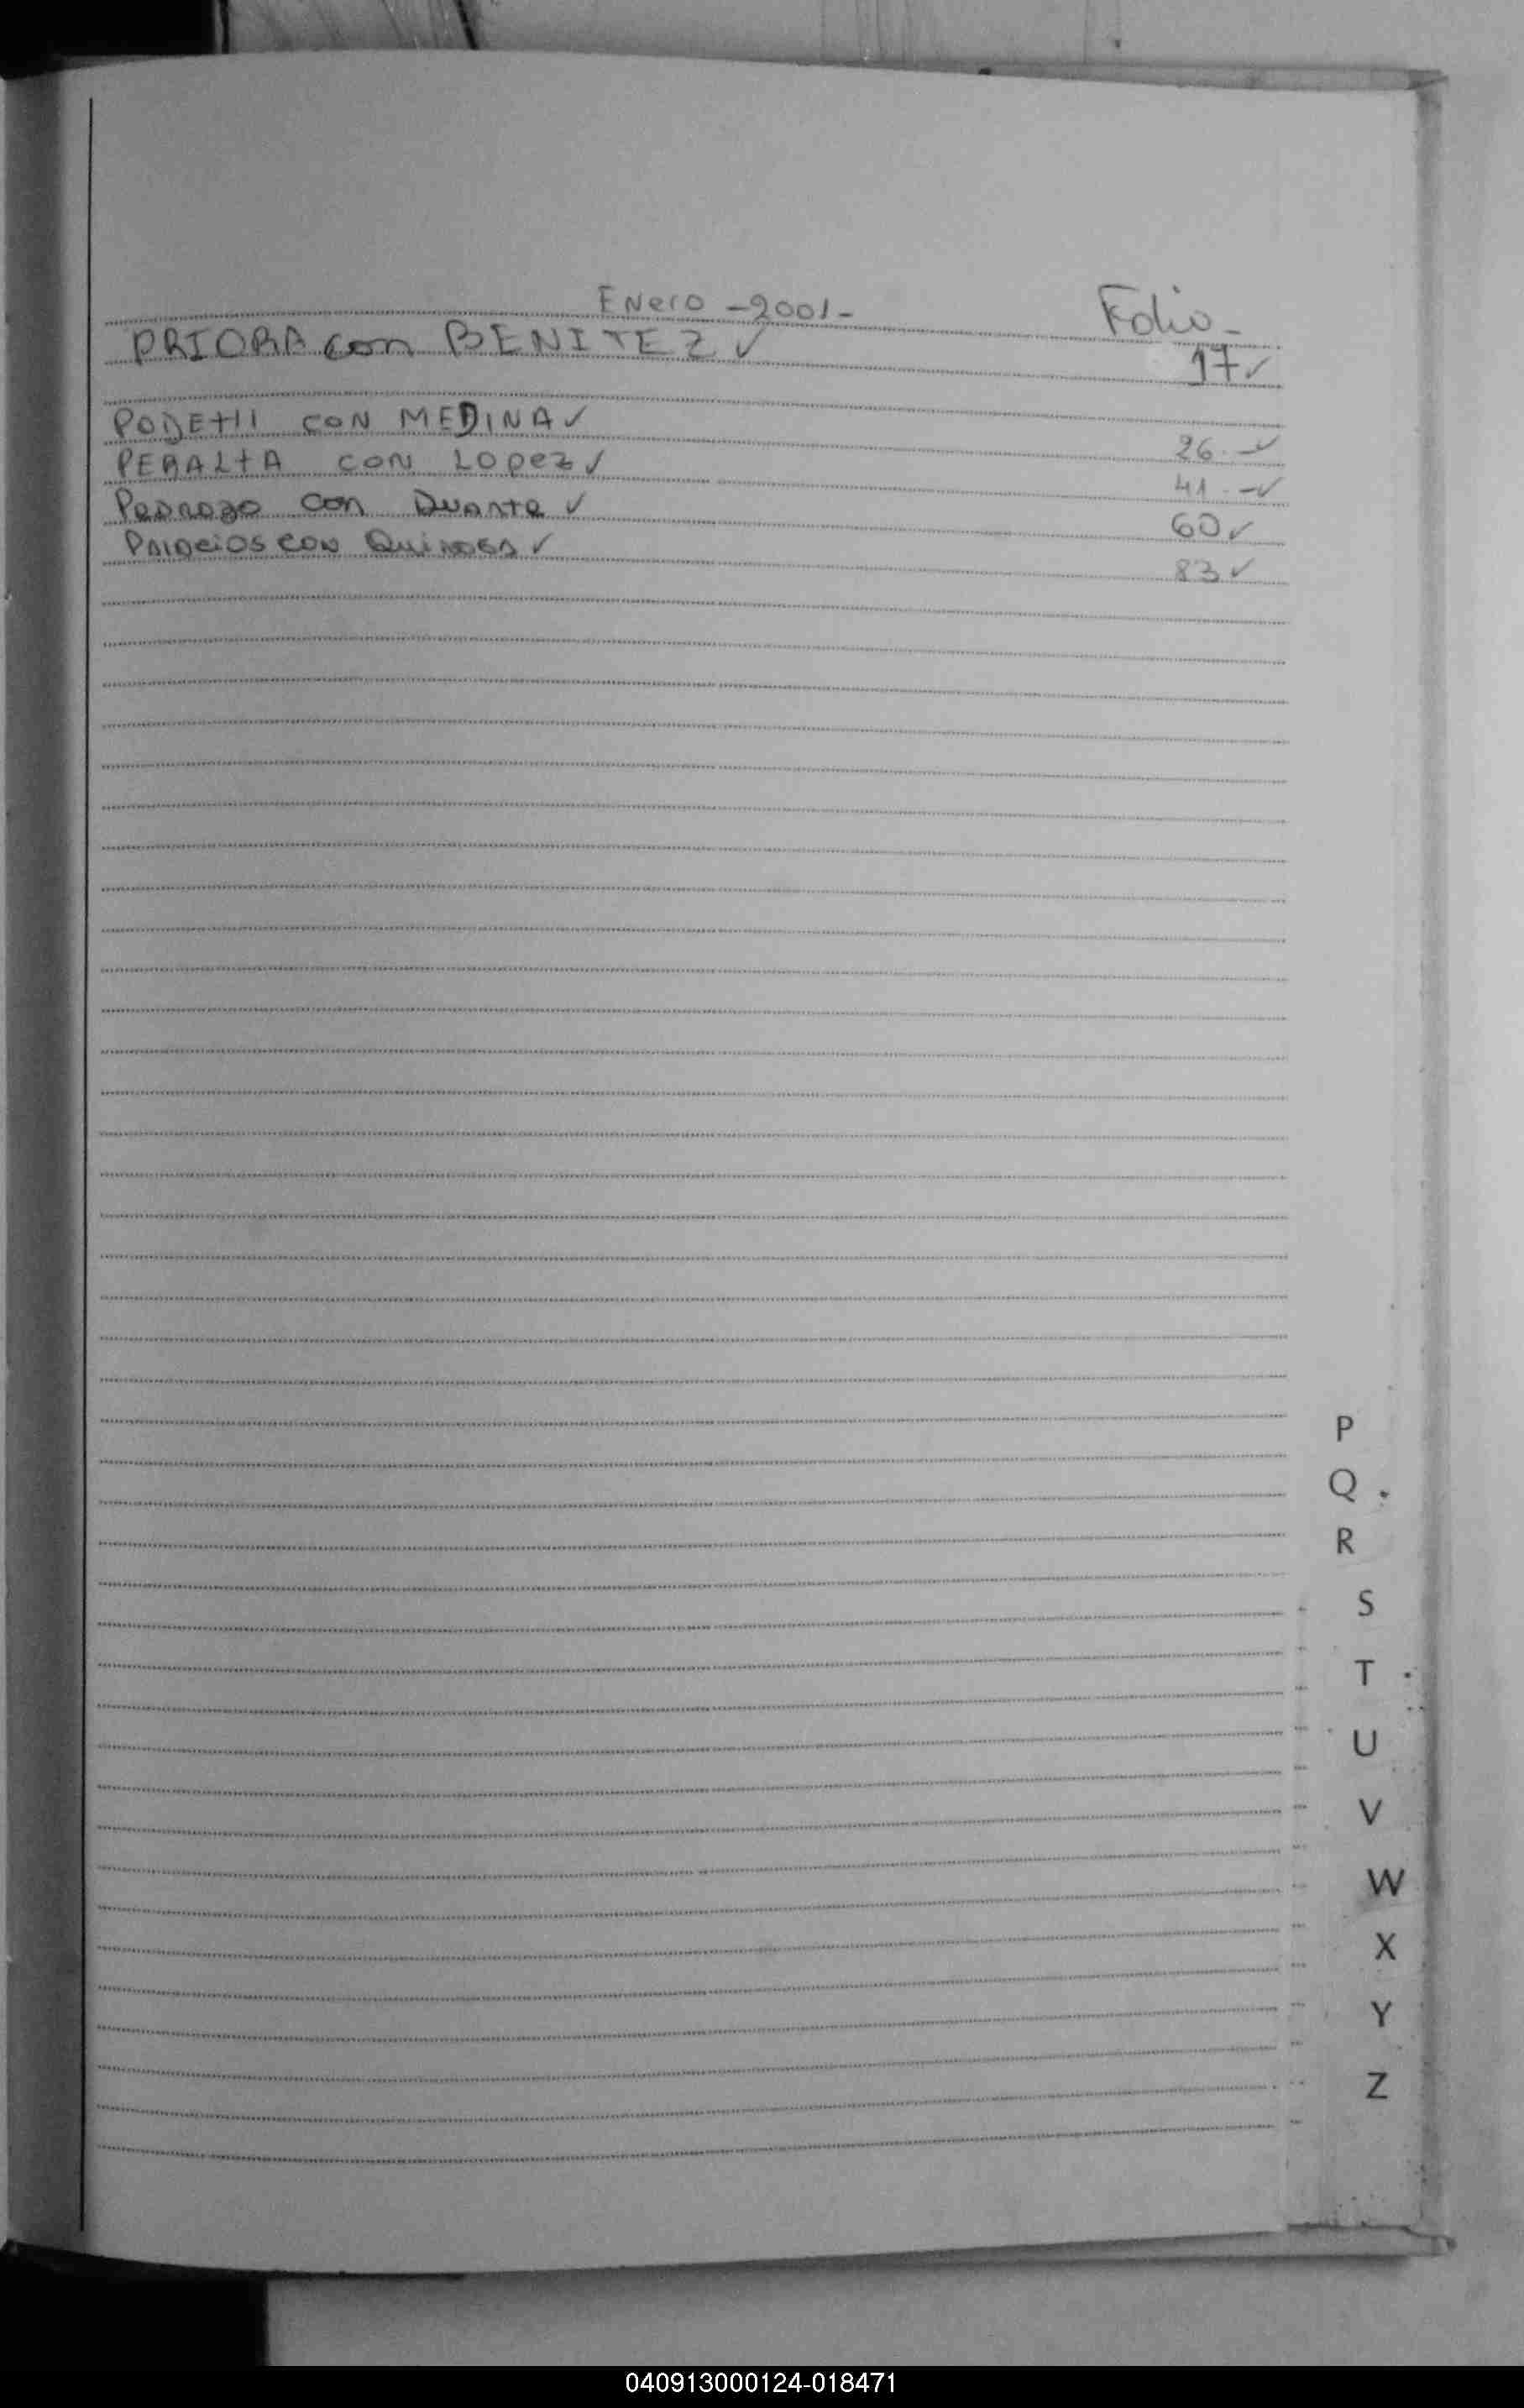 Enero - 2001 - Folio -
PRIORA con BENITEZ ✓ 17 ✓
PODETTI CON MEDINA ✓ 26. - ✓
PERALTA CON LOPEZ ✓ 41 - ✓
Pedrozo con Duarte ✓ 60 ✓
con ✓ 83 ✓
P
Q
R
S
T
U
V
W
X
Y
Z
040913000124-018471